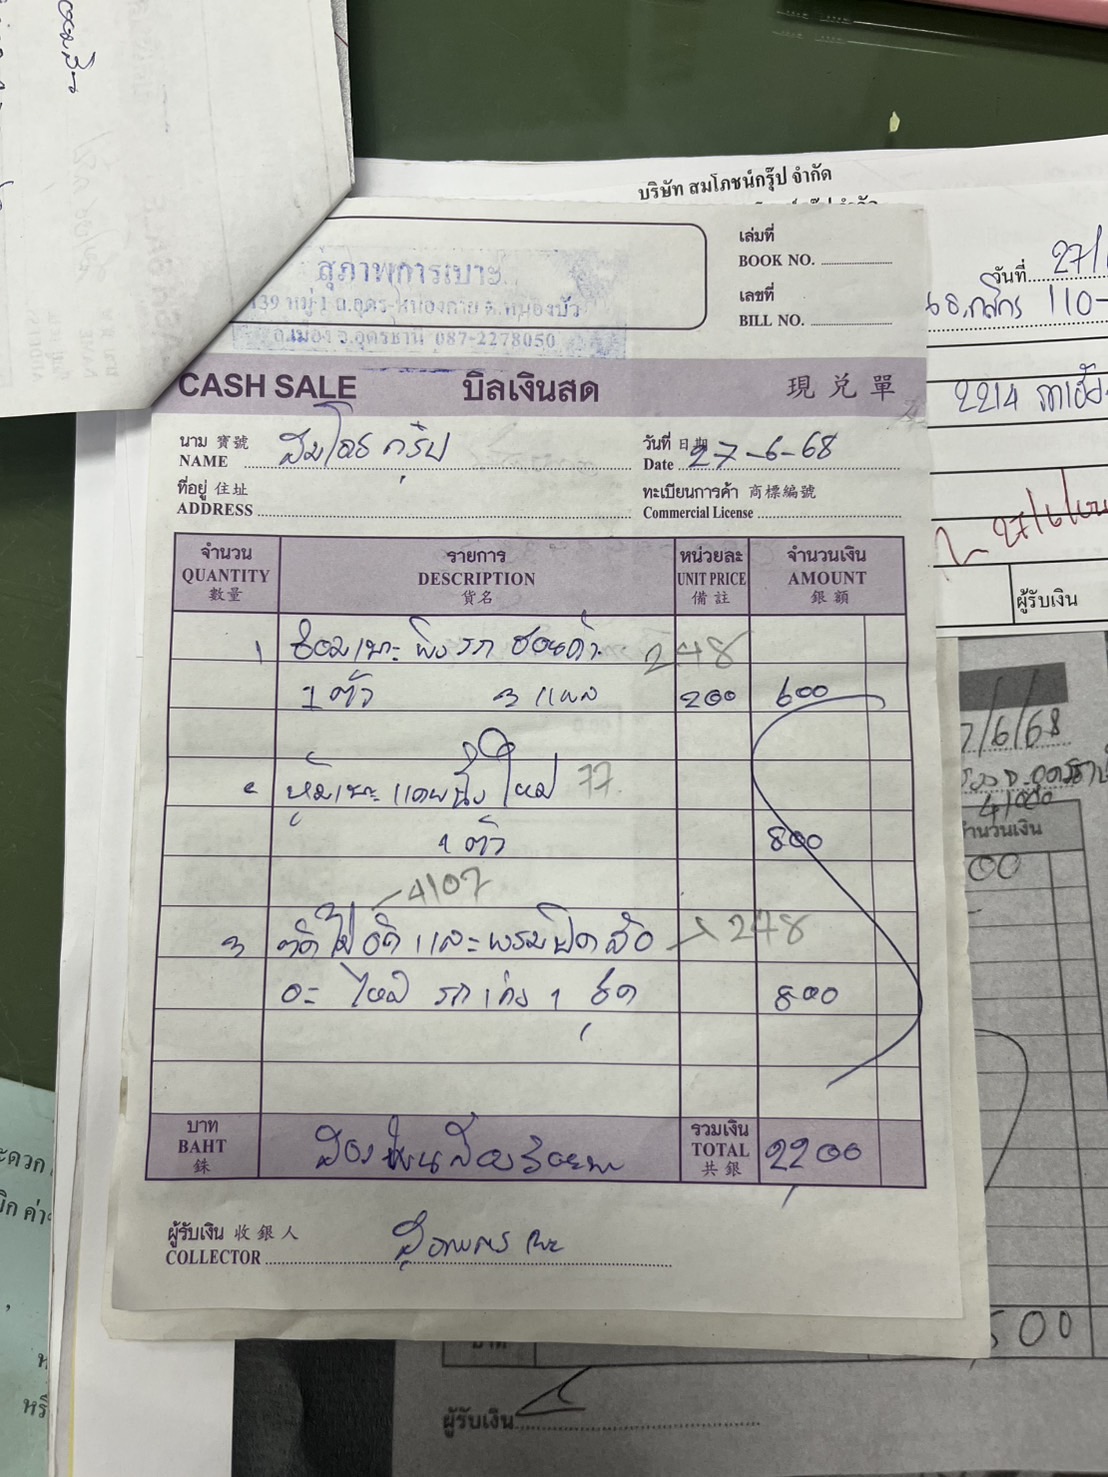 บริษัท สมโภชน์กรุ๊ป จำกัด
เล่มที่
BOOK NO.
เลขที่
BILL NO.
สุภาพการเบาะ
139 หมู่ 1 ถ.อุดร-หนองคาย ต.หนองบัว
อ.เมือง จ.อุดรธานี 087-2278050
CASH SALE บิลเงินสด 現兌單
นาม 寶號
NAME สมโภช กรุ๊ป
วันที่ 日期
Date 27-6-68
ที่อยู่ 住址
ADDRESS
ทะเบียนการค้า 商標編號
Commercial License
จำนวน รายการ หน่วยละ จำนวนเงิน
QUANTITY DESCRIPTION UNIT PRICE AMOUNT
數量 貨名 備註 銀額
1 ซ่อมเบาะ 248
1 ตัว 3 แผล 200 600
2 หุ้มเบาะ ใหม่ 77
1 ตัว 800
4107
3 ตัด และพรมปิดล้อ 248
อะไหล่ รถเก๋ง 1 ชุด 800
บาท
BAHT
銖
สองพันสองร้อยบาท
รวมเงิน
TOTAL 2200
共銀
ผู้รับเงิน 收銀人
COLLECTOR
วันที่ 27/
110-
2214
27/6/
ผู้รับเงิน
7/6/68
4100
จำนวนเงิน
00
500
ผู้รับเงิน